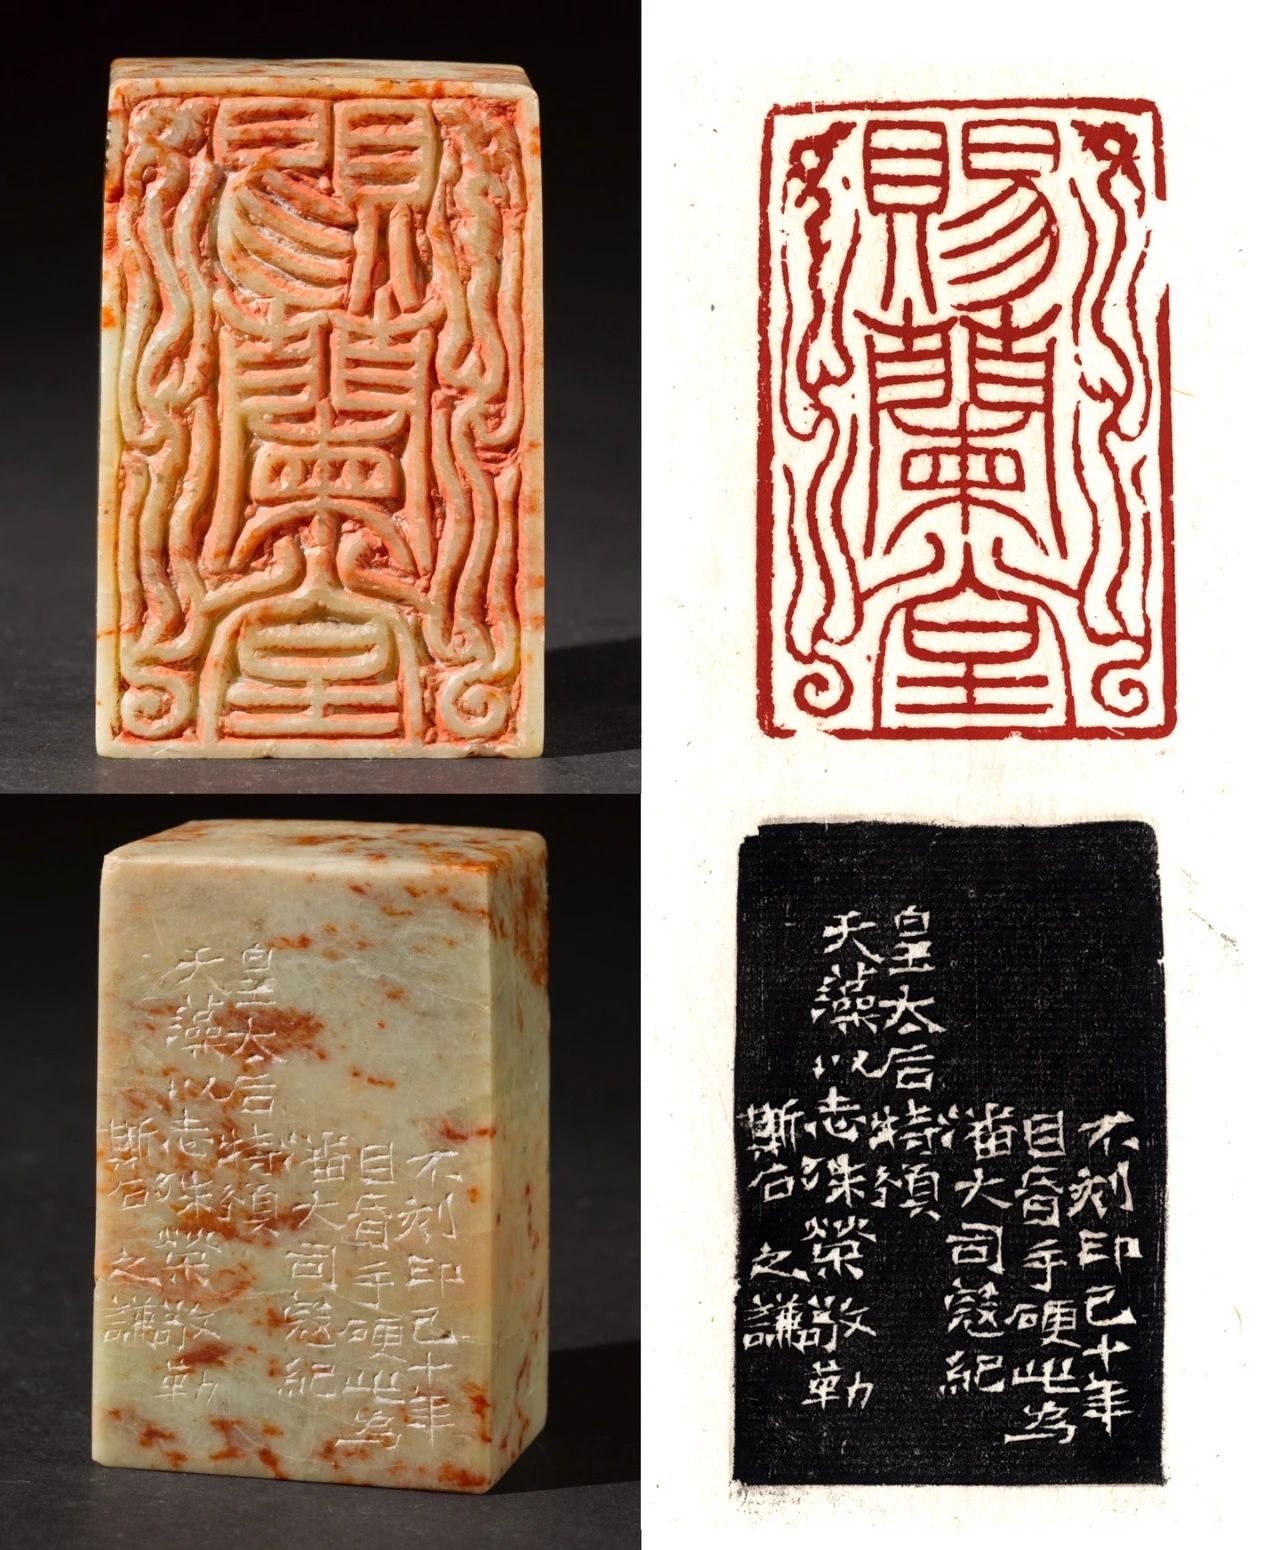 賜蘭堂
賜蘭堂
不刻印已十年
目昏手硬此為
潘大司寇紀
皇太后特頒
天藻以志殊榮敬勒
斯石之謙
不刻印已十年
目昏手硬此為
潘大司寇紀
皇太后特頒
天藻以志殊榮敬勒
斯石之謙